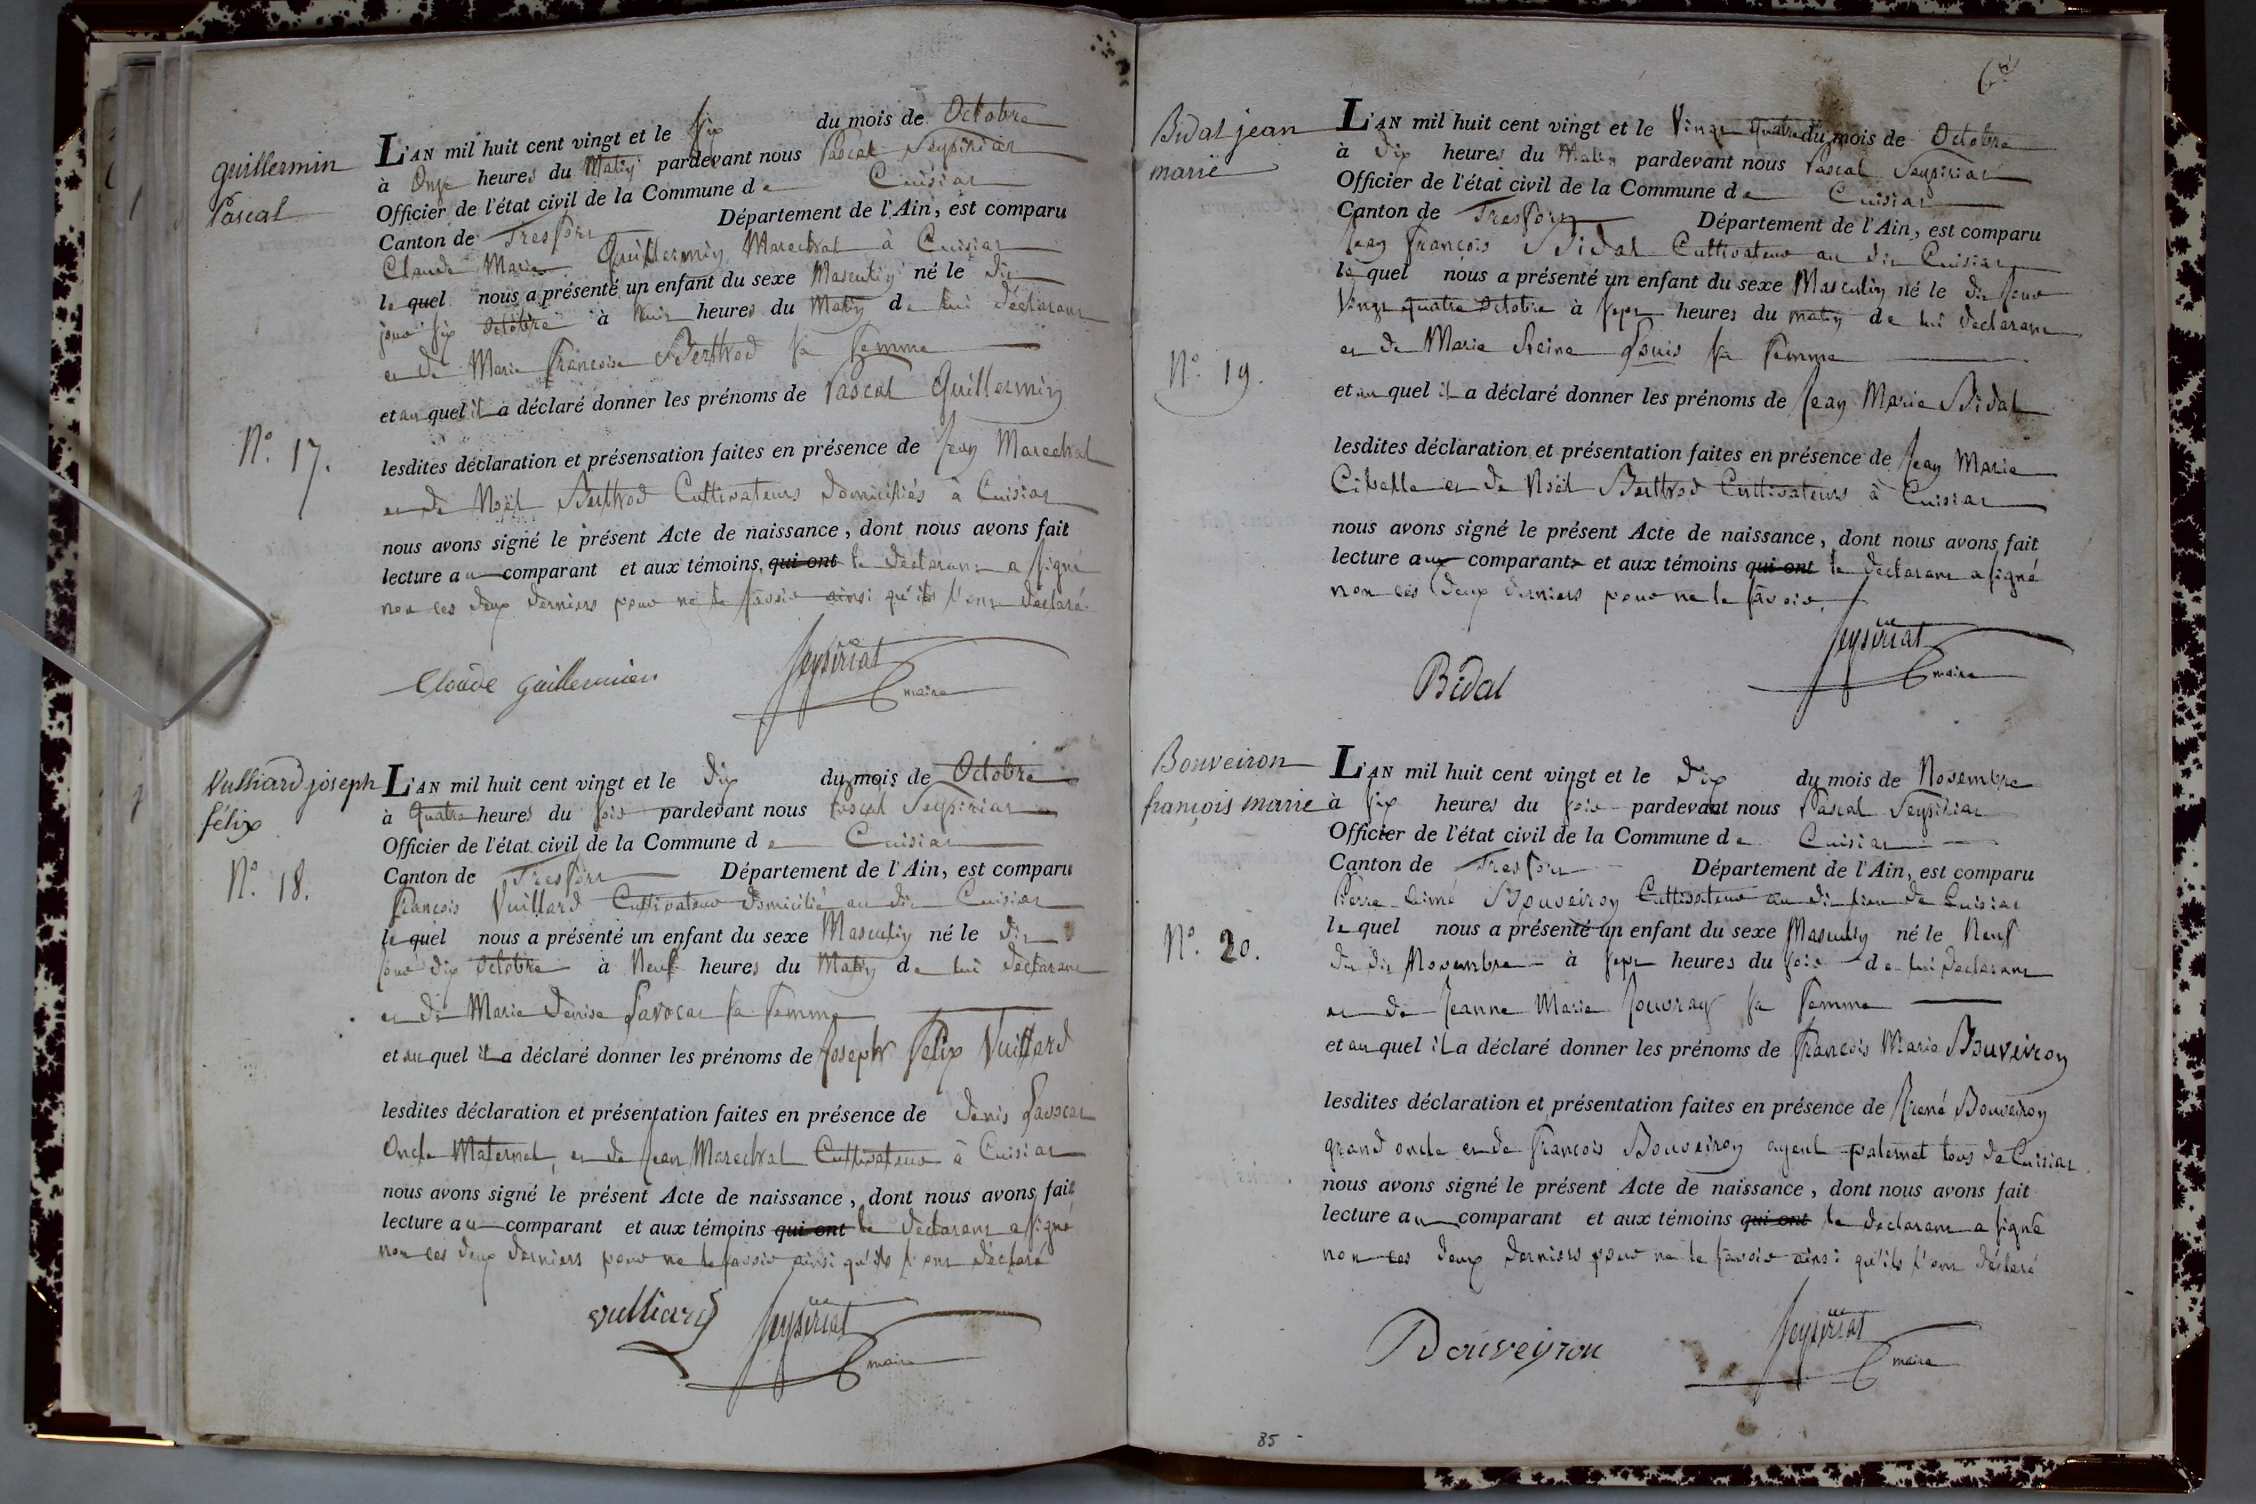 guillermin
Pascal
N.º 17.
L'AN mil huit cent vingt et le six du mois de Octobre
à Onze heures du Matin pardevant nous Pascal Seysiriat
Officier de l'état civil de la Commune de Cuisiat
Canton de Treffort Département de l'Ain, est comparu
Claude Marie Guillermin Marechal à Cuisiat
lequel nous a présenté un enfant du sexe Masculin né le dit
jour six Octobre à huit heures du Matin de lui déclarant
et de Marie françoise Berthod sa femme
et au quel il a déclaré donner les prénoms de Pascal Guillermin
lesdites déclaration et présensation faites en présence de Jean Marechal
et de Noël Berthod Cultivateurs domiciliés à Cuisiat
nous avons signé le présent Acte de naissance, dont nous avons fait
lecture au comparant et aux témoins, qui ont le déclarant a signé
non les deux derniers pour ne le savoir ainsi qu'ils l'ont déclaré
Claude guillermin Seysiriat
maire
Vulliard joseph
félix
N.º 18.
L'AN mil huit cent vingt et le dix du mois de Octobre
à quatre heures du soir pardevant nous Pascal Seysiriat
Officier de l'état civil de la Commune de Cuisiat
Canton de Treffort Département de l'Ain, est comparu
françois Vuillard Cultivateur domicilié au dit Cuisiat
lequel nous a présenté un enfant du sexe Masculin né le dit
jour dix Octobre à Neuf heures du Matin de lui déclarant
et de Marie denise Lavocat sa femme
et au quel il a déclaré donner les prénoms de Joseph félix Vuillard
lesdites déclaration et présentation faites en présence de denis Lavocat
Oncle Maternel, et de Jean Marechal Cultivateur à Cuisiat
nous avons signé le présent Acte de naissance, dont nous avons fait
lecture au comparant et aux témoins qui ont le déclarant a signé
non les deux derniers pour ne le savoir ainsi qu'ils l'ont déclaré
vulliard Seysiriat
maire
Bidat jean
marie
N.º 19.
L'AN mil huit cent vingt et le Vingt quatre du mois de Octobre
à dix heures du Matin pardevant nous Pascal Seysiriat
Officier de l'état civil de la Commune de Cuisiat
Canton de Treffort Département de l'Ain, est comparu
Jean françois Bidat Cultivateur au dit Cuisiat
lequel nous a présenté un enfant du sexe Masculin né le dit jour
Vingt quatre Octobre à sept heures du matin de lui déclarant
et de Marie Reine Louis sa femme
et au quel il a déclaré donner les prénoms de Jean Marie Bidat
lesdites déclaration et présentation faites en présence de Jean Marie
Cibelle et de Noël Berthod Cultivateurs à Cuisiat
nous avons signé le présent Acte de naissance, dont nous avons fait
lecture aux comparants et aux témoins qui ont le déclarant a signé
non les deux derniers pour ne le savoir.
Bidal Seysiriat
maire
Bouveiron
françois marie
N.º 20.
L'AN mil huit cent vingt et le dix du mois de Novembre
à six heures du soir pardevant nous Pascal Seysiriat
Officier de l'état civil de la Commune de Cuisiat
Canton de Treffort Département de l'Ain, est comparu
Pierre Aimé Bouveiron Cultivateur au dit lieu de Cuisiat
lequel nous a présenté un enfant du sexe Masculin né le Neuf
du dit Novembre à sept heures du soir de lui déclarant
et de Jeanne Marie Jouvray sa femme
et au quel il a déclaré donner les prénoms de françois Marie Bouveiron
lesdites déclaration et présentation faites en présence de René Bouveiron
grand oncle et de françois Bouveiron ayeul paternel tous de Cuisiat
nous avons signé le présent Acte de naissance, dont nous avons fait
lecture au comparant et aux témoins qui ont le déclarant a signé
non les deux derniers pour ne le savoir ainsi qu'ils l'ont déclaré
Bouveyron Seysiriat
maire
85